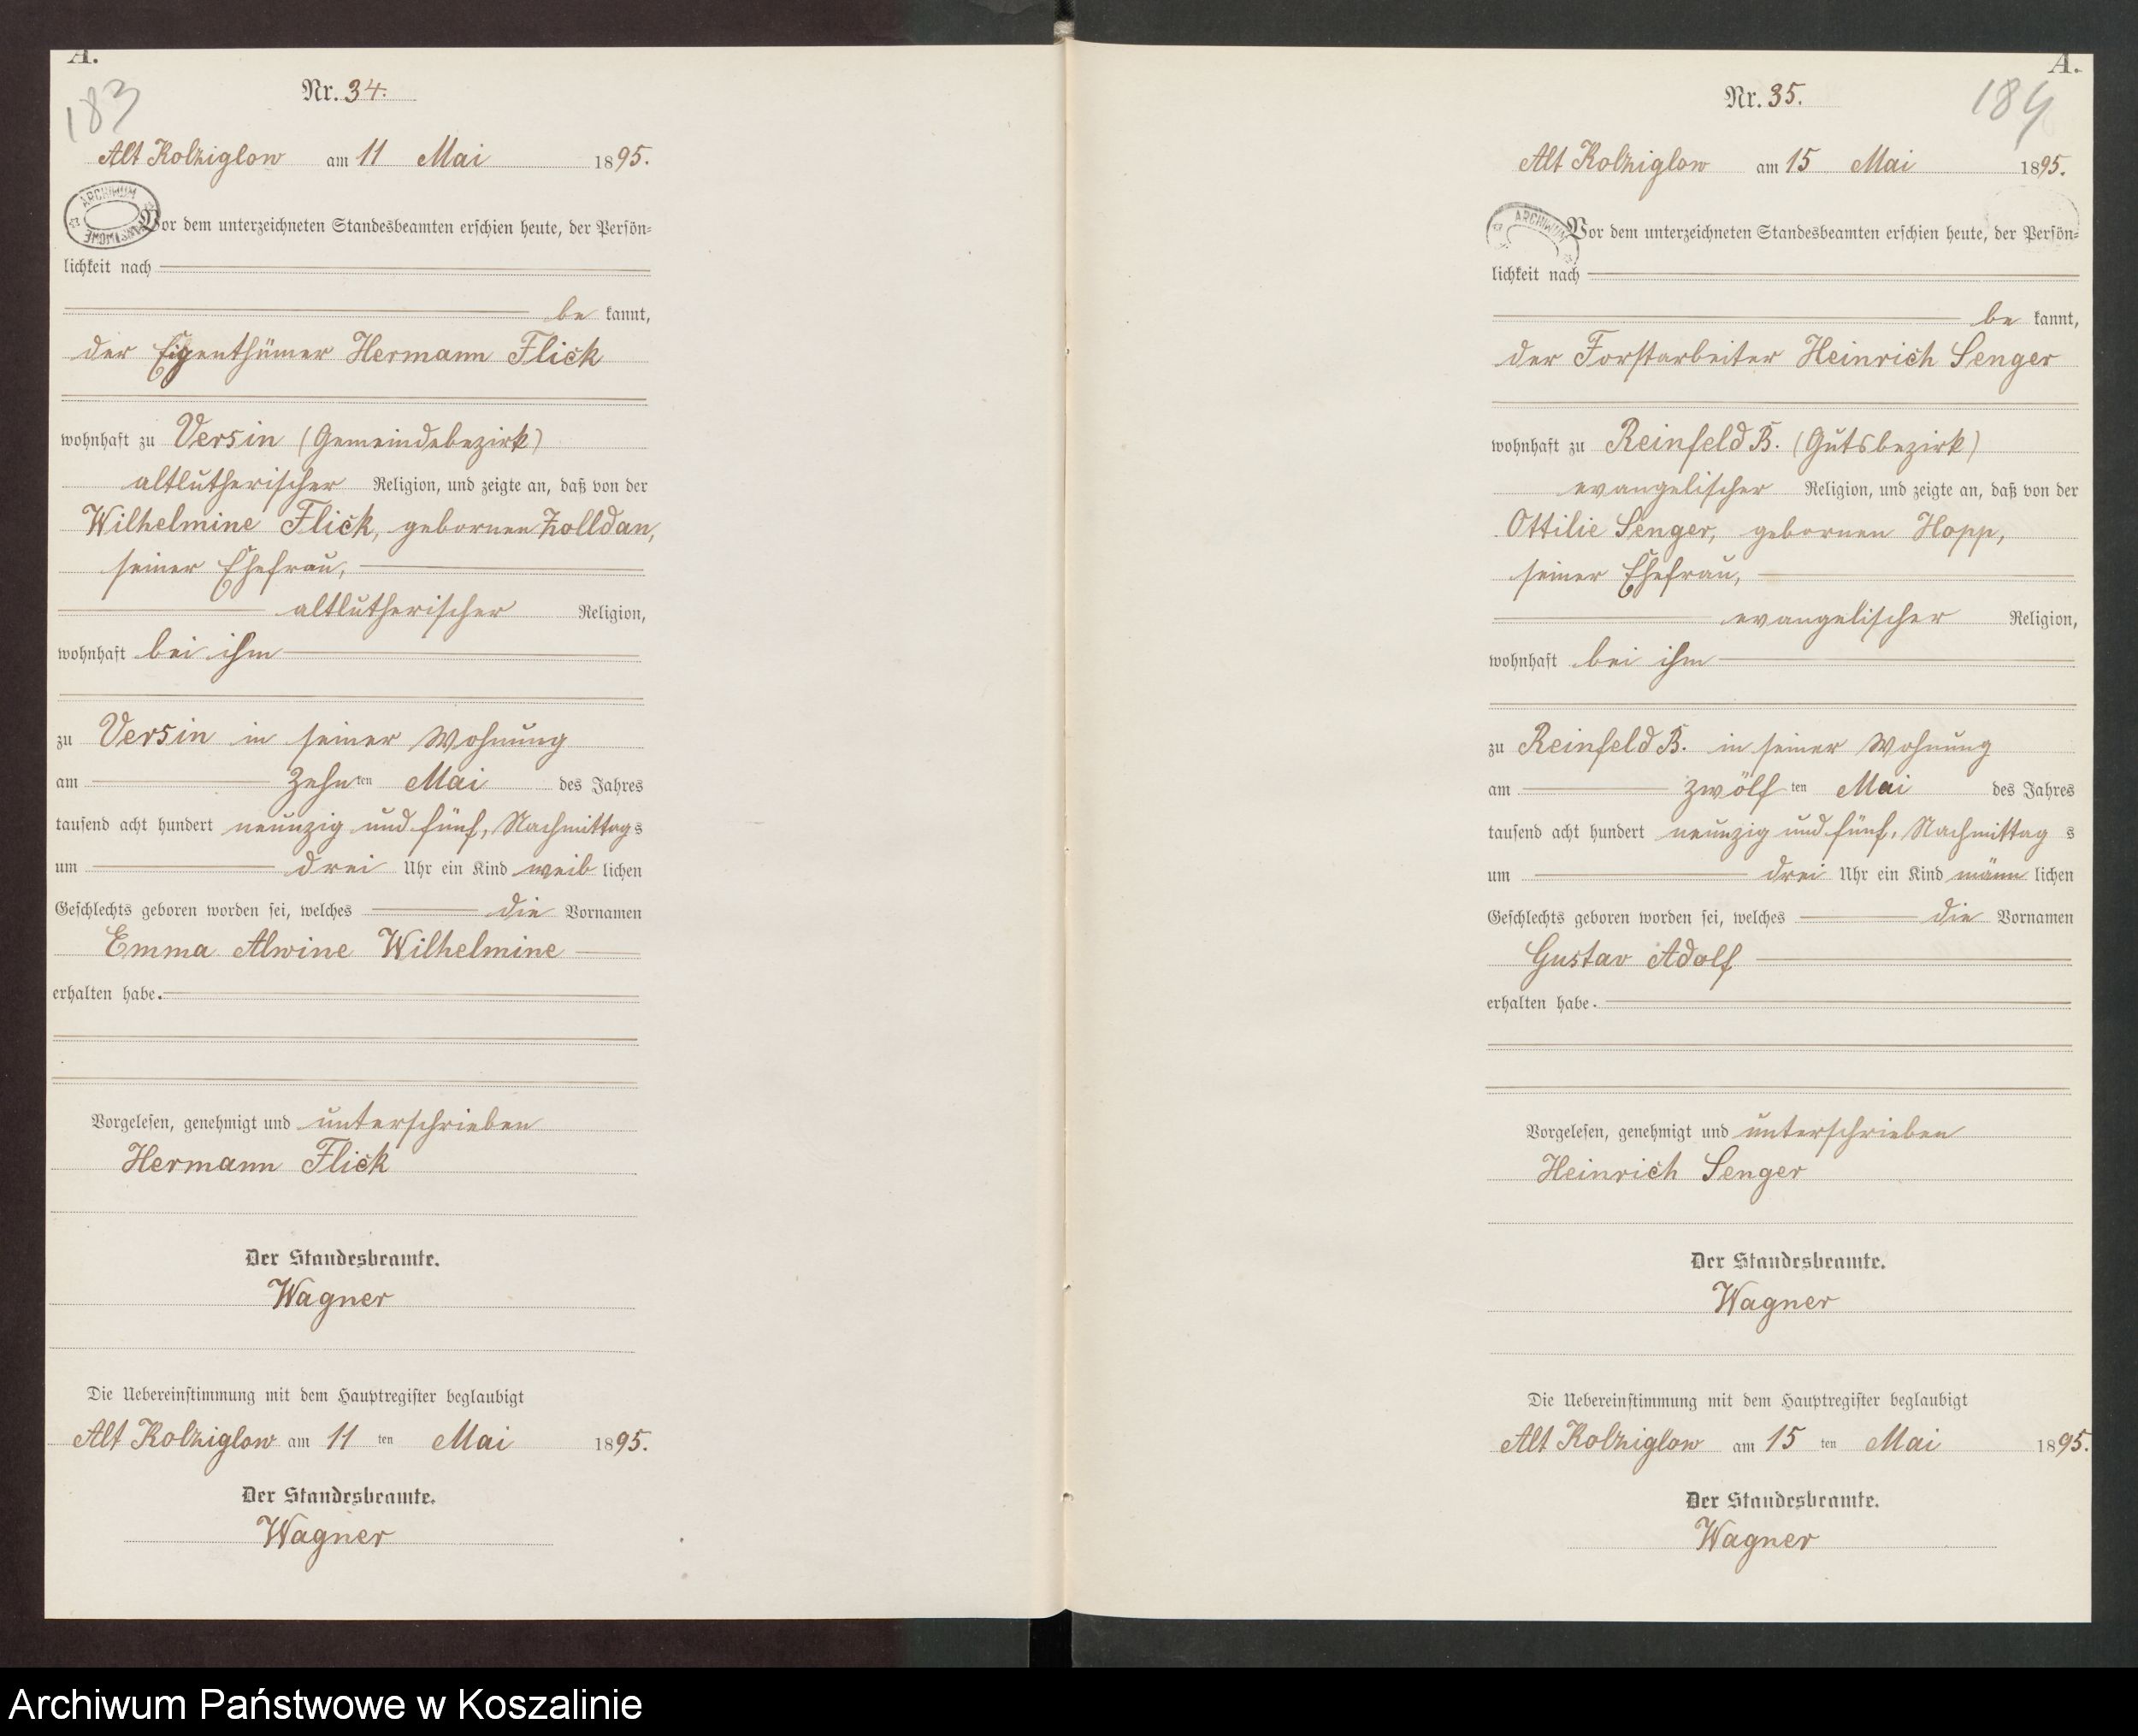 A.
183
Nr. 34.
Alt Kolziglow am 11 Mai 1895.
ARCHIWUM PAŃSTWOWE
Vor dem unterzeichneten Standesbeamten erschien heute, der Persön-
lichkeit nach
be kannt,
der Eigenthümer Hermann Flick
wohnhaft zu Versin (Gemeindebezirk)
altlutherischer Religion, und zeigte an, daß von der
Wilhelmine Flick, gebornen Zolldan,
seiner Ehefrau,
altlutherischer Religion,
wohnhaft bei ihm
zu Versin in seiner Wohnung
am zehn ten Mai des Jahres
tausend acht hundert neunzig und fünf, Nachmittag s
um drei Uhr ein Kind weib lichen
Geschlechts geboren worden sei, welches die Vornamen
Emma Alwine Wilhelmine
erhalten habe.
Vorgelesen, genehmigt und unterschrieben
Hermann Flick
Der Standesbeamte.
Wagner
Die Uebereinstimmung mit dem Hauptregister beglaubigt
Alt Kolziglow am 11 ten Mai 1895.
Der Standesbeamte.
Wagner
A.
184
Nr. 35.
Alt Kolziglow am 15 Mai 1895.
ARCHIWUM
Vor dem unterzeichneten Standesbeamten erschien heute, der Persön-
lichkeit nach
be kannt,
der Forstarbeiter Heinrich Senger
wohnhaft zu Reinfeld B. (Gutsbezirk)
evangelischer Religion, und zeigte an, daß von der
Ottilie Senger, gebornen Hopp,
seiner Ehefrau,
evangelischer Religion,
wohnhaft bei ihm
zu Reinfeld B. in seiner Wohnung
am zwölf ten Mai des Jahres
tausend acht hundert neunzig und fünf, Nachmittag s
um drei Uhr ein Kind männ lichen
Geschlechts geboren worden sei, welches die Vornamen
Gustav Adolf
erhalten habe.
Vorgelesen, genehmigt und unterschrieben
Heinrich Senger
Der Standesbeamte.
Wagner
Die Uebereinstimmung mit dem Hauptregister beglaubigt
Alt Kolziglow am 15 ten Mai 1895.
Der Standesbeamte.
Wagner
Archiwum Państwowe w Koszalinie